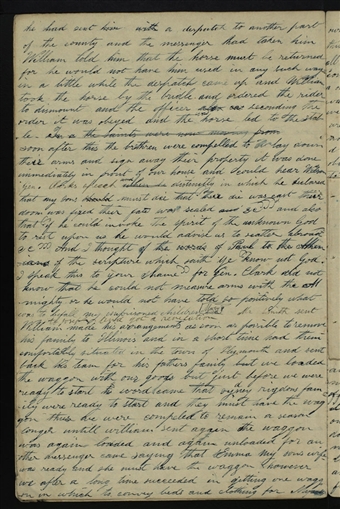 he had sent him with a dispatch to another part
of the county and the messenger had taken him
William told him that the horse must be returned
for he would not have him used in any such way
in a little while the despatch came up and William
took the horse by the bridle and ordered the rider
to dismount and the officer seconding the
order it was obeyed and the horse led to the stab
le. In a the saints were now moving from
soon after this the brethren were compelled to lay down
their arms and sign away their property it was done
immediately in front of our house and I could hear
Gen. Clark's speech distinctly in which he declared
that my sons must die that their die was cast their
doom was fixed their fate was sealed and &c and also
that if he could invoke the spirit of the unknown God
to rest upon us he would advise us to scatter abroad
&c And I thought of the words of Paul to the Athen
ians of the scripture which saith Ye know not God
I speak this to your shame for Gen. Clark did not
know that he could not measure arms with the Al
mighty or he would not have told so positively what
was to befall my children
William made his arrangements as soon as possible to remove
his family to Illinois and in a short time had them
comfortably situated in the town of Plymouth and sent
back his team for his father's family but we loaded
the waggon with our goods but just before we were
ready to start word came that rigdons fam
ily were ready to start and they must have the wag
gon thus we were compelled to remain a season
longer untill william sent again the waggon
was again loaded and again unloaded for an
other messenger came saying that Emma my sons wife
was ready and she must have the waggon however
we after a long time succeeded in getting one wagg
on in which to convey beds and clothing for